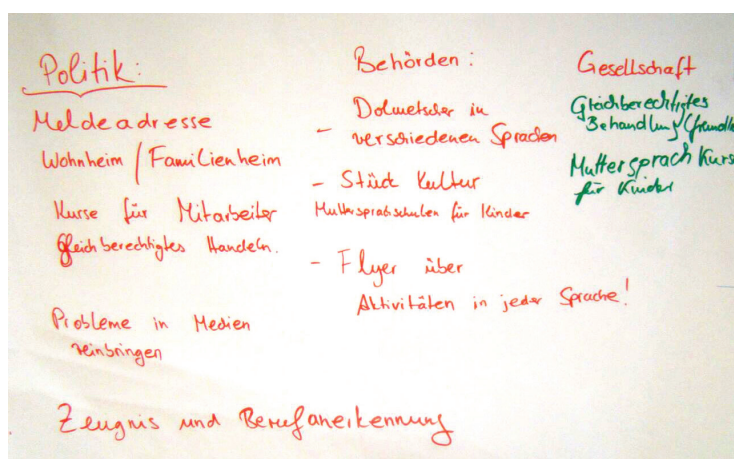 Politik:
Meldeadresse
Wohnheim / Familienheim
Kurse für Mitarbeiter
gleichberechtigtes Handeln.
Probleme in Medien
reinbringen
Behörden:
- Dolmetscher in
verschiedenen Sprachen
- Stück Kultur
Muttersprachschulen für Kinder
- Flyer über
Aktivitäten in jeder Sprache!
Gesellschaft
Gleichberechtigtes
Behandlung
Muttersprach Kurse
für Kinder
Zeugnis und Berufanerkennung